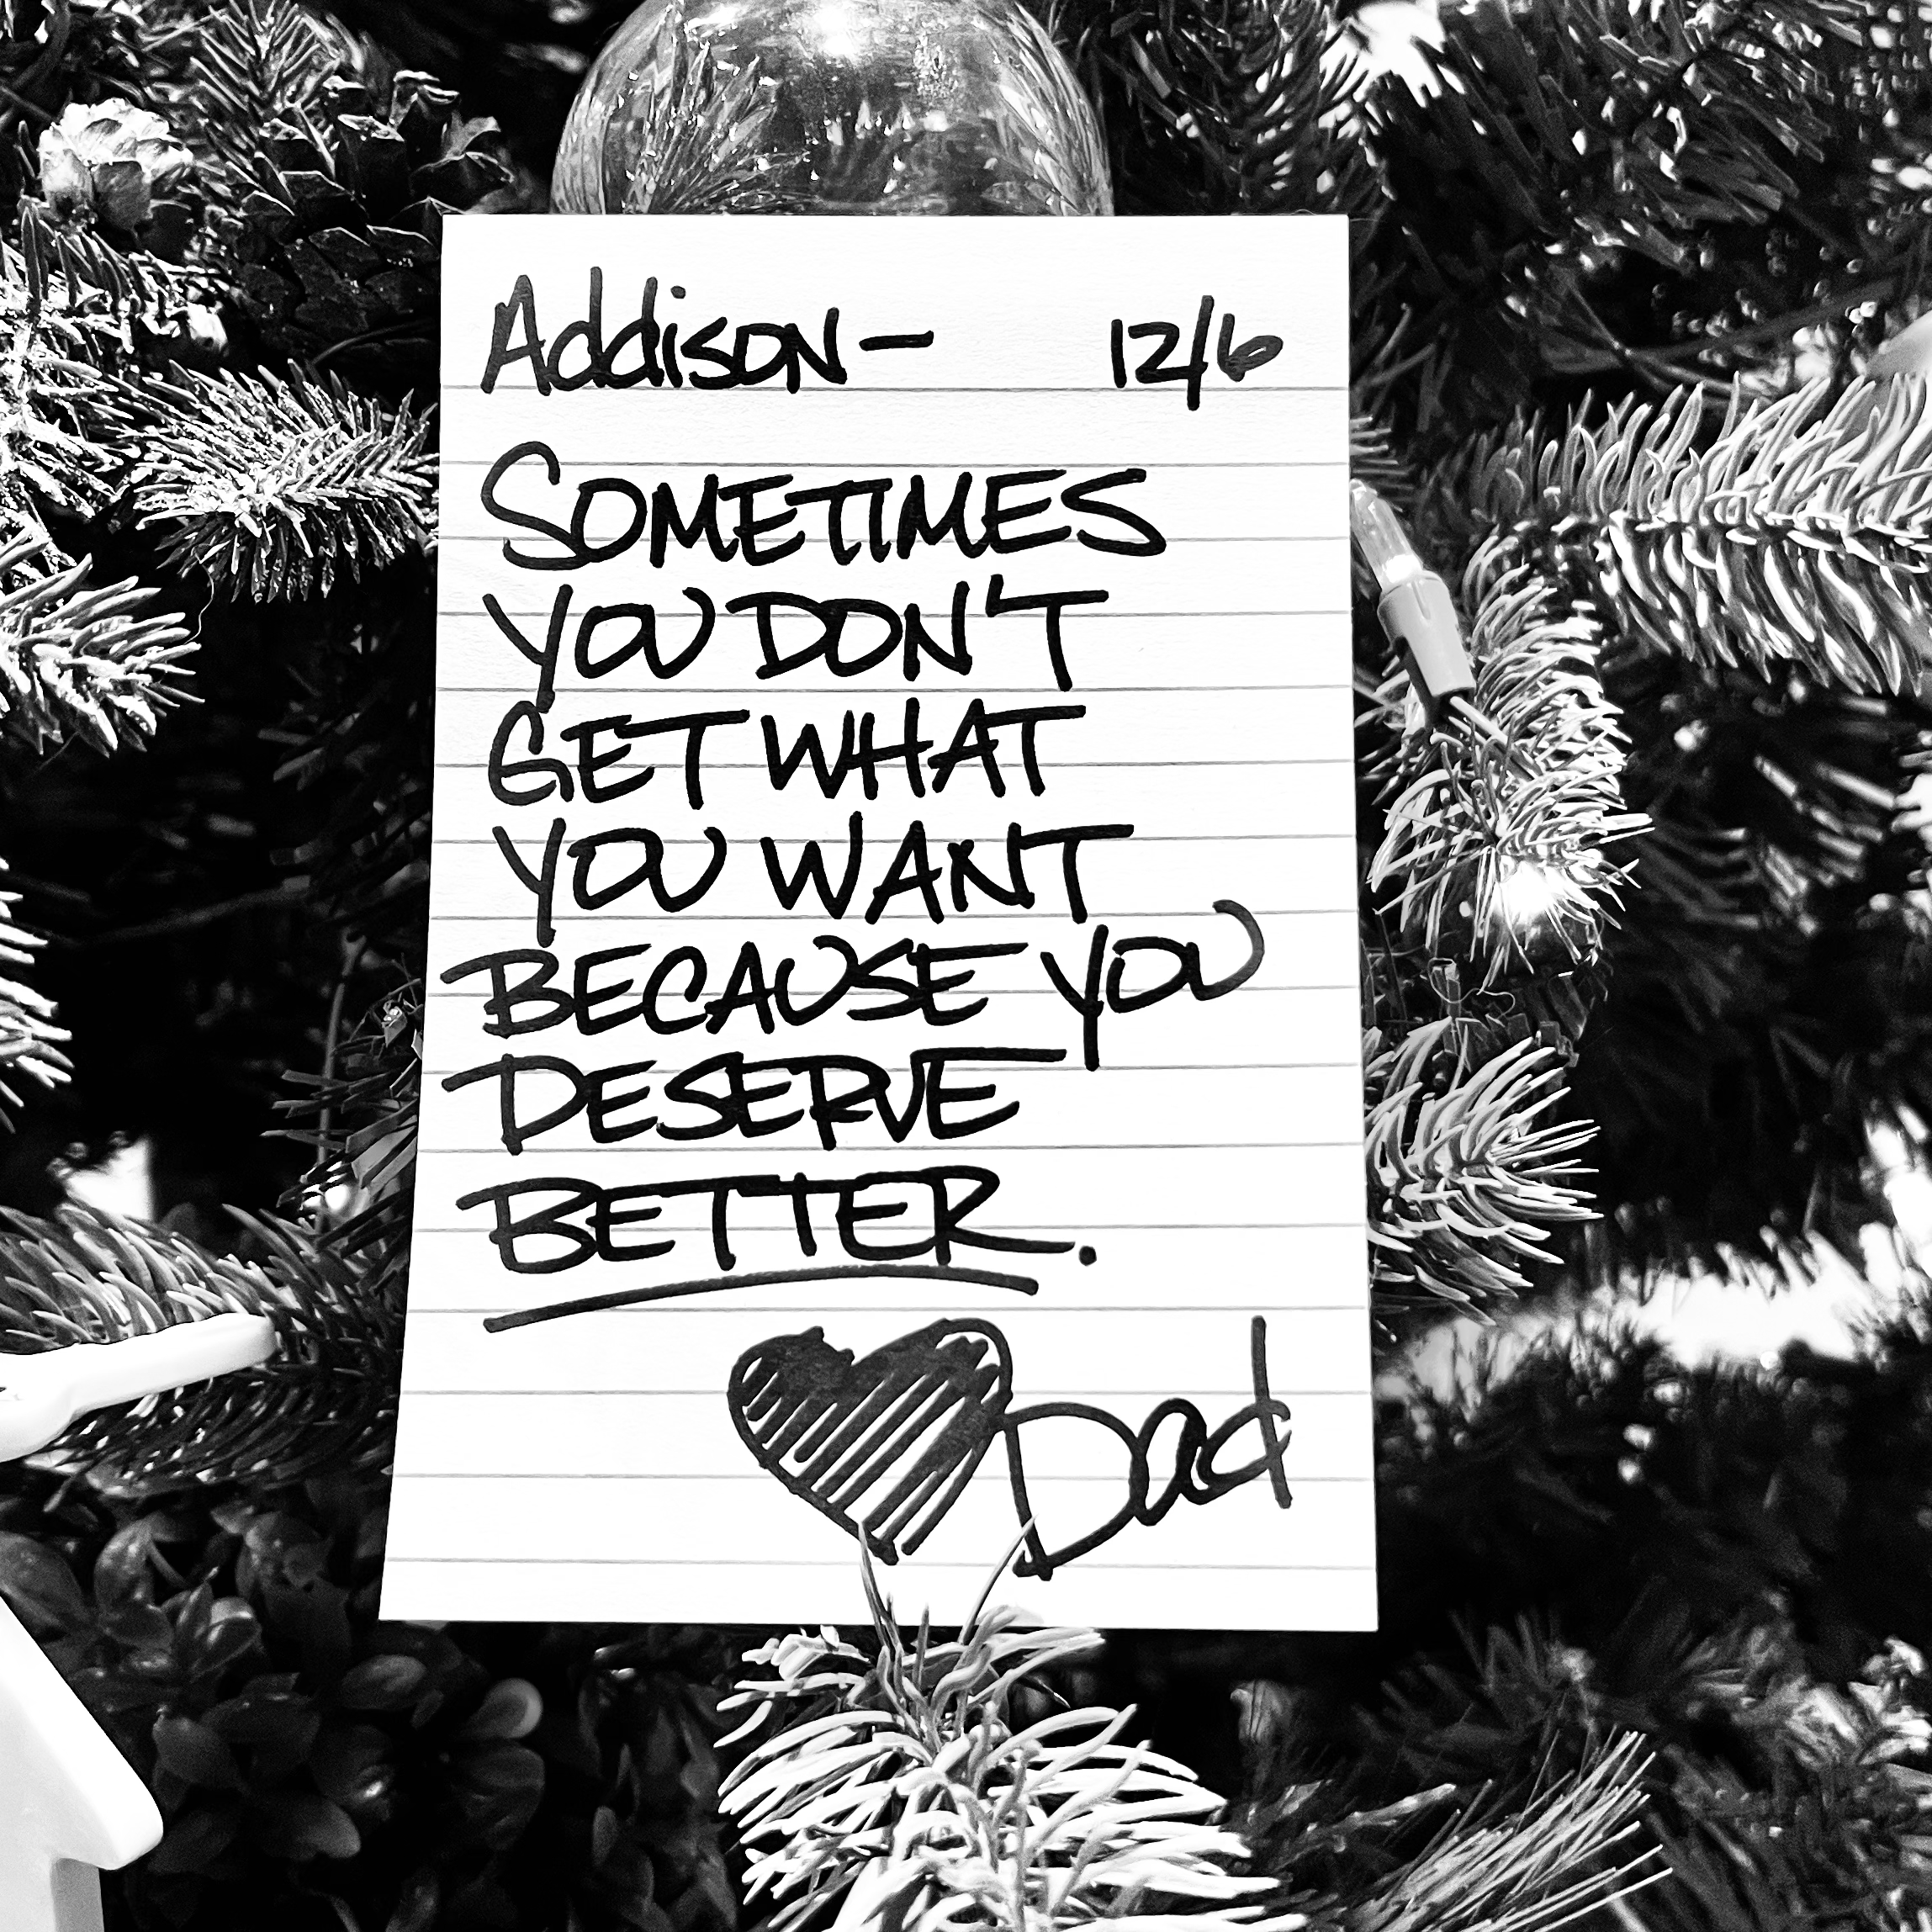 Addison- 12/6
SOMETIMES
YOU DON'T
GET WHAT
YOU WANT
BECAUSE YOU
DESERVE
BETTER.
Dad